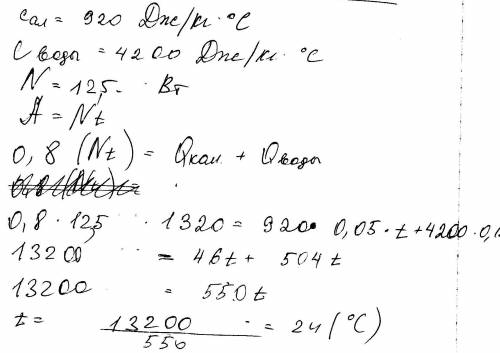 Cал = 920 Дж/кг · °C
C воды = 4200 Дж/кг. °C
N = 12,5 · Вт
A = Nt
0,8 (Nt) = Qкал + Qводы
0,8 · 12,5 · 1320 = 920 · 0,05 · t + 4200 · 0,1
13200 = 46t + 504t
13200 = 550t
t = 13200 / 550 = 24 (°C)